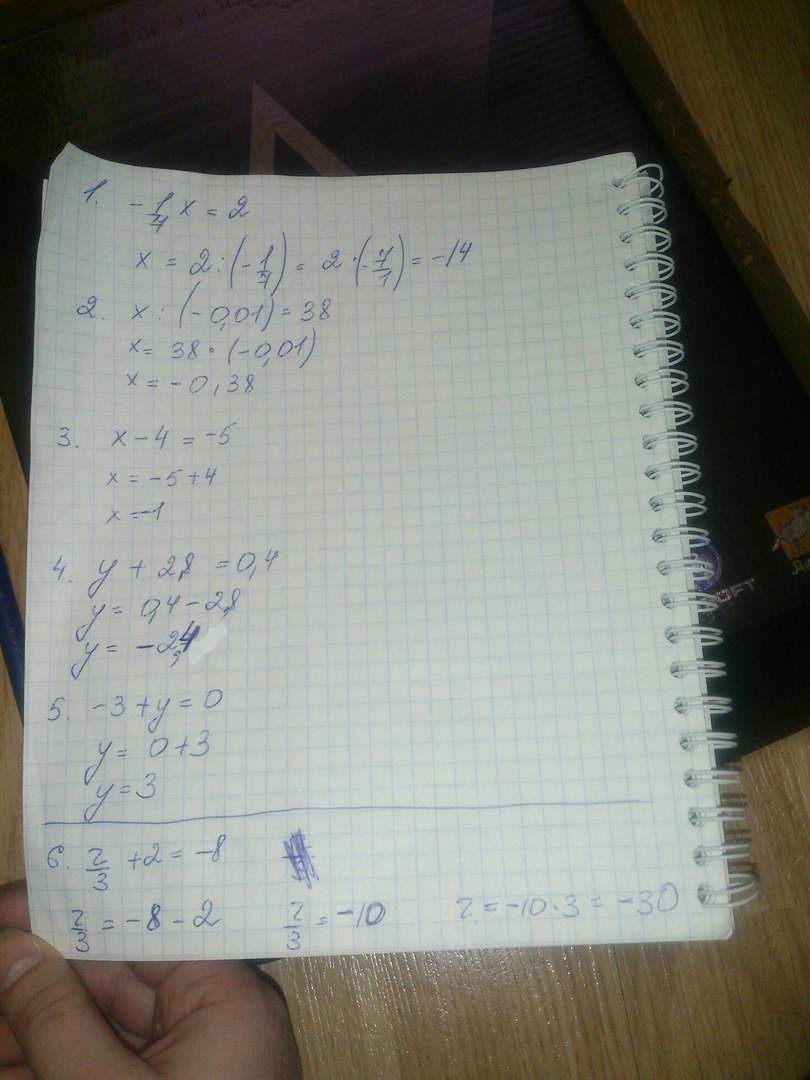 1. -1/7 x = 2
x = 2 : (-1/7) = 2 · (-7/1) = -14
2. x : (-0,01) = 38
x = 38 · (-0,01)
x = -0,38
3. x - 4 = -5
x = -5 + 4
x = -1
4. y + 2,8 = 0,4
y = 0,4 - 2,8
y = -2,4
5. -3 + y = 0
y = 0 + 3
y = 3
6. z/3 + 2 = -8
z/3 = -8 - 2 z/3 = -10 z = -10 · 3 = -30
OFT